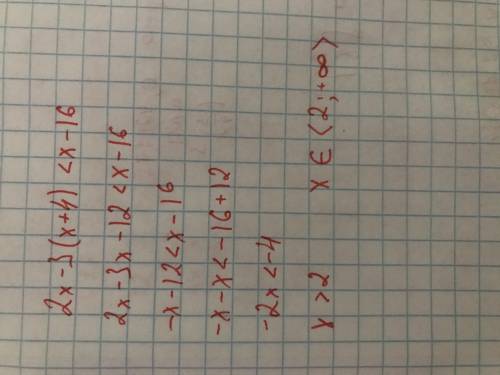 2x-3(x+4) <x-16
2x-3x-12<x-16
-x-12<x-16
-x-x<-16+12
-2x<-4
x>2 x∈(2;+∞)